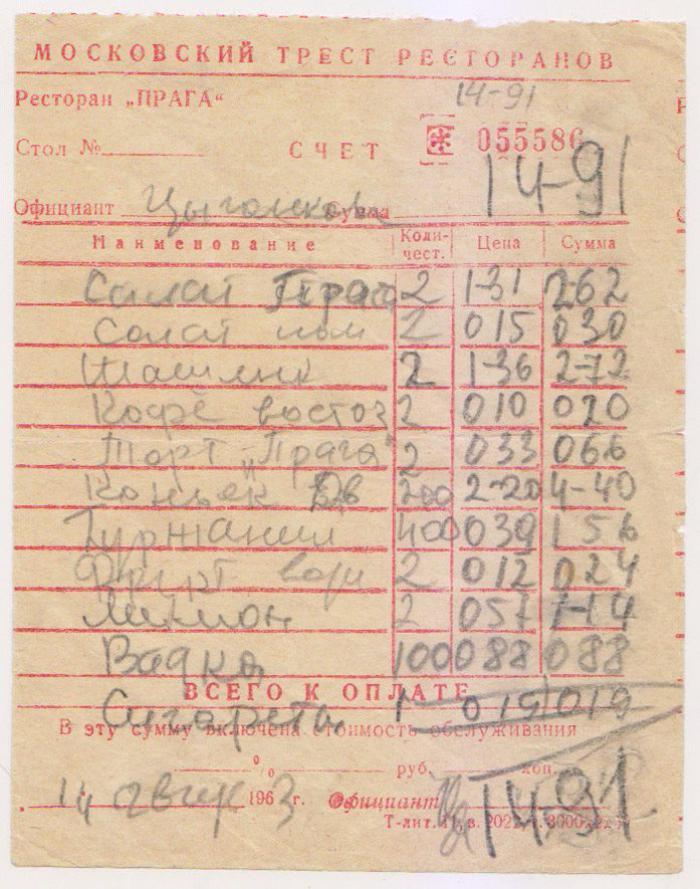 МОСКОВСКИЙ ТРЕСТ РЕСТОРАНОВ
Ресторан „ПРАГА“ 14-91
Стол № СЧЕТ 055586
14-91
Официант Сумма
Наименование Коли-чест. Цена Сумма
Салат Прага 2 1-31 2-62
Солат пом 2 015 030
Шашлик 2 1-36 2-72
Кофе восточ 2 010 020
Торт „Прага“ 2 033 066
Коньяк 200 2-20 4-40
Гуржаани 400 039 156
Фрукт воды 2 012 024
2 057 1-14
Водка 100 088 088
ВСЕГО К ОПЛАТЕ
Сигареты 1 019 019
В эту сумму включена стоимость обслуживания
% руб. коп.
14 август 1963 г. Официант 14-91
Т-лит.